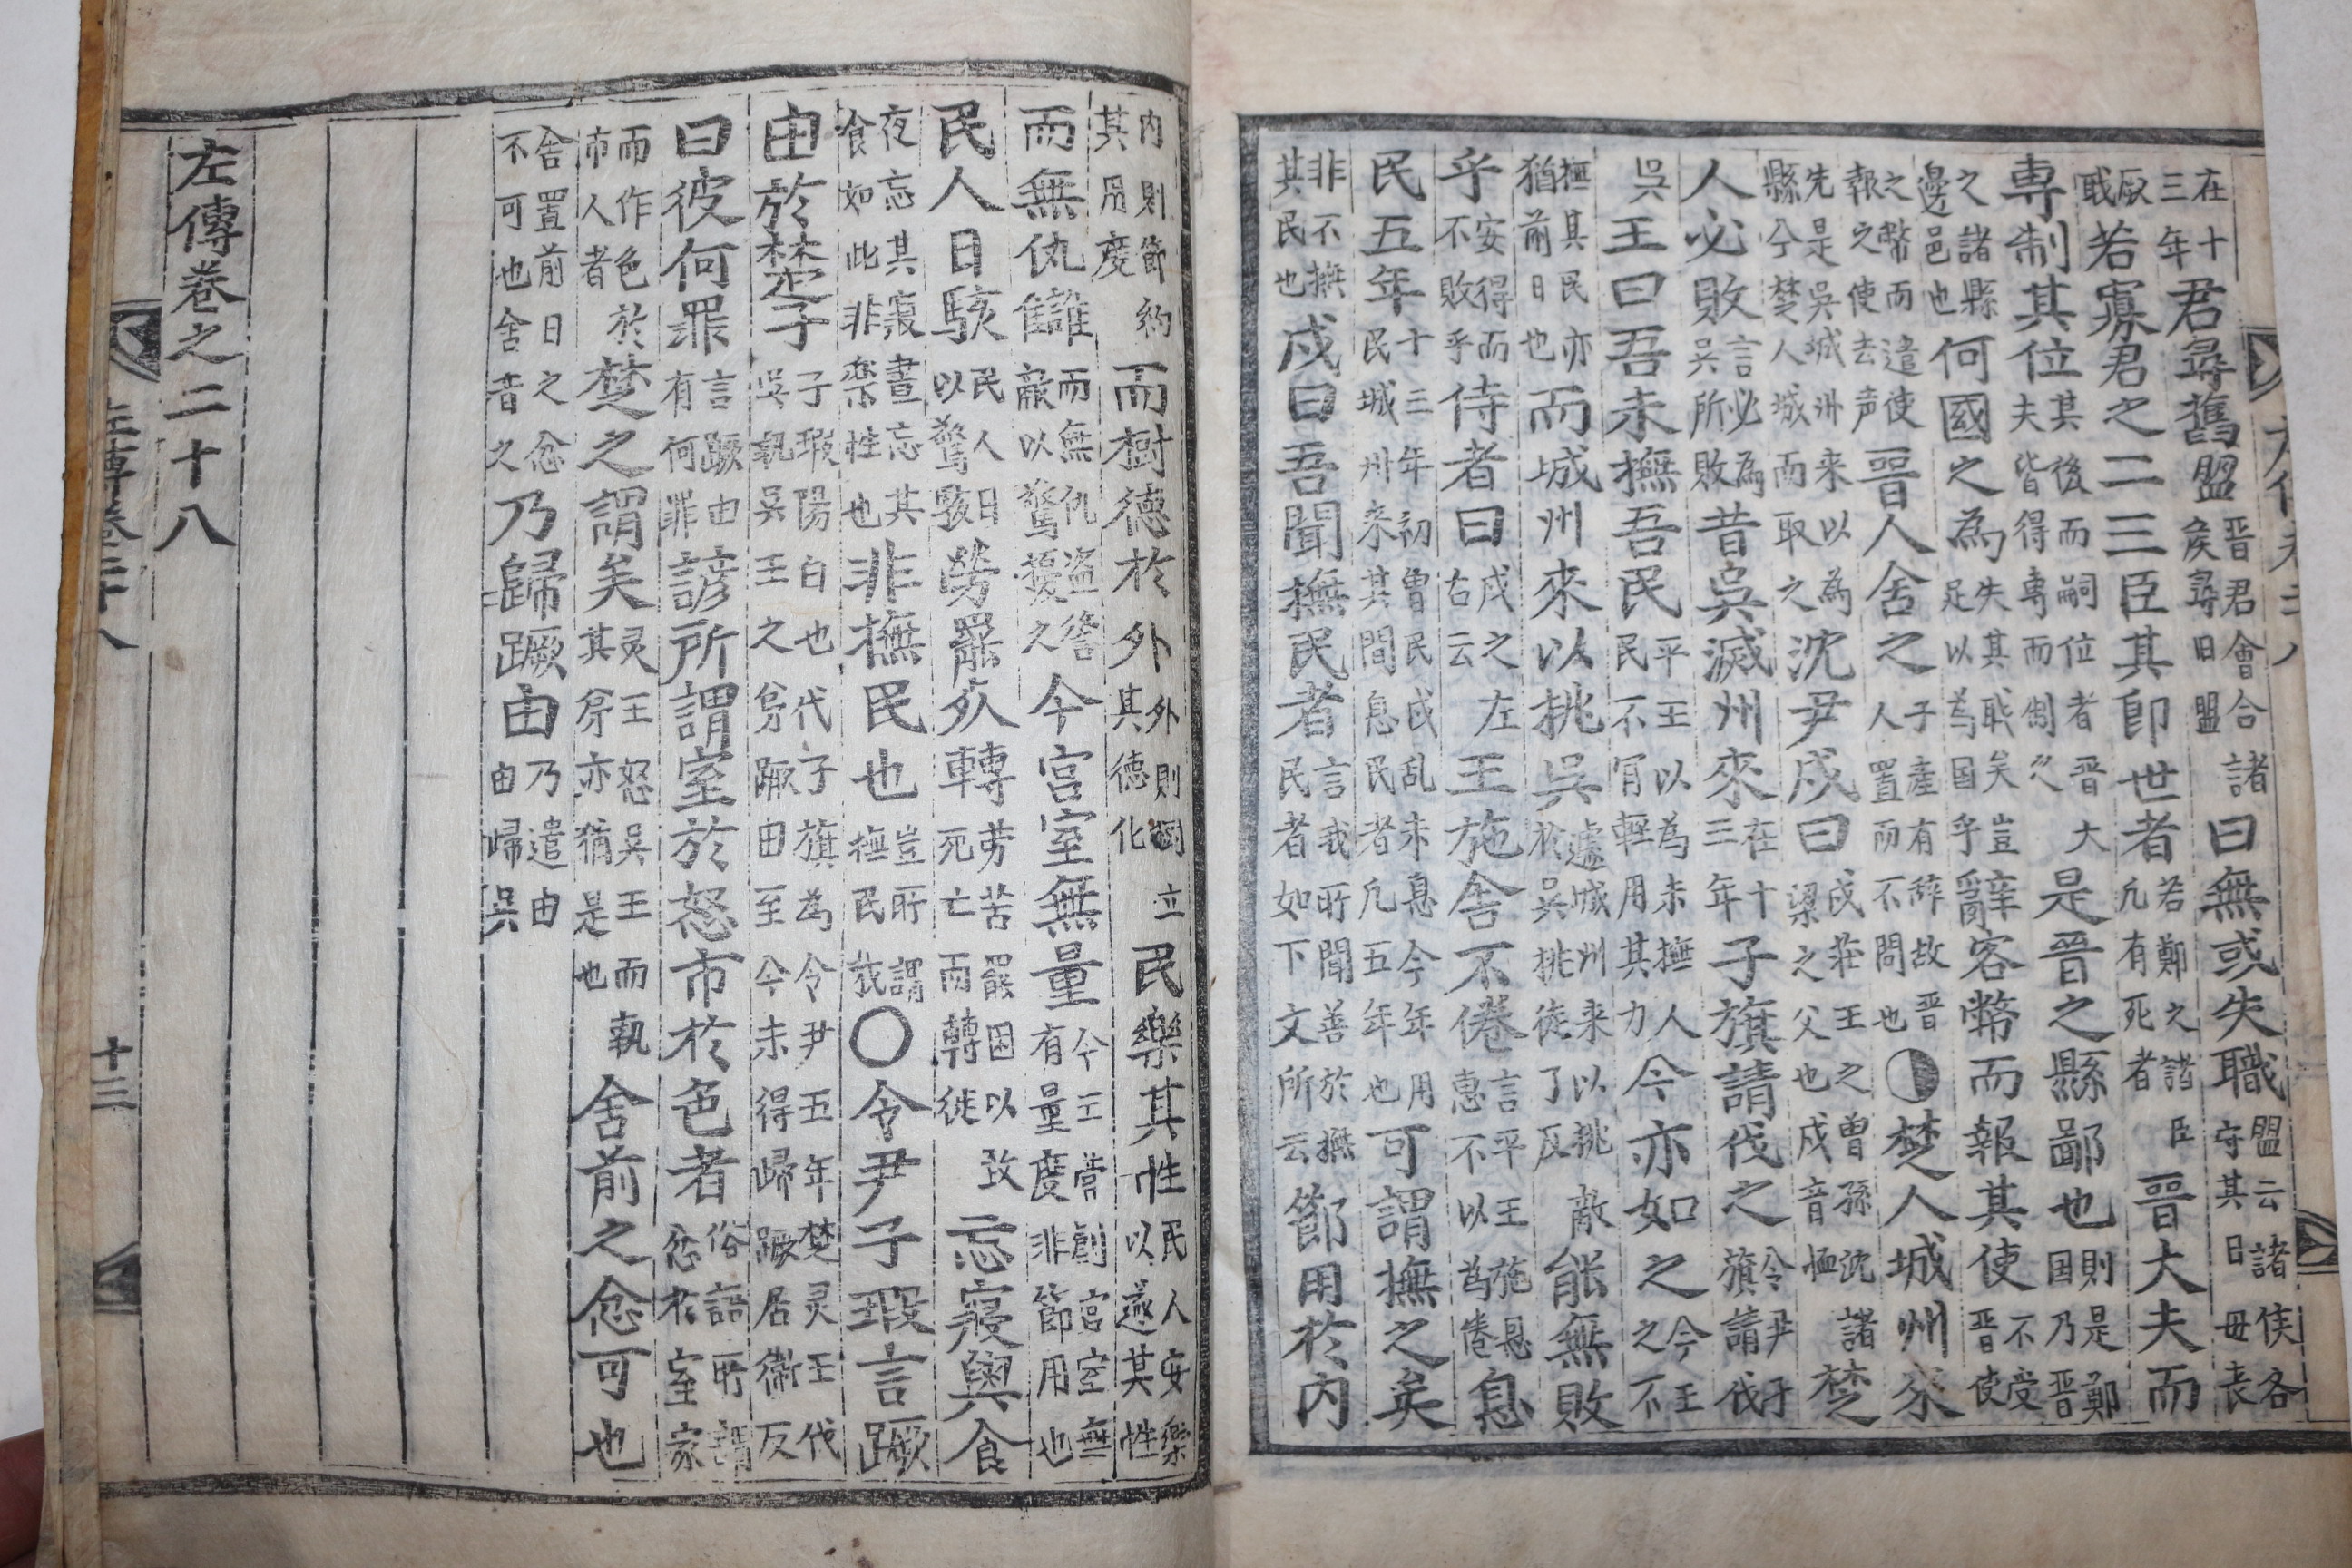 在十三年君尋舊盟晋君會合諸矦尋旧盟曰無或失職盟云諸侯各守其日毋丧
厥戝若寡君之二三臣其卽世者若鄭之諸臣凡有死者晉大夫而
専制其位其後而嗣位者晋大夫皆得專而制之是晉之縣鄙也則是鄭国乃晋
之諸縣邊邑也何國之為失其职矣豈足以為国乎辭客幣而報其使不受晋使
之幣而遣使報之使去声晉人舍之子產有辞故晋人置而不問也◑楚人城州來
先是吳城州来以為縣今楚人城而取之沈尹戌曰戌莊王之曾孫沈諸梁之父也戌音恤楚
人必敗言必為吳所敗昔吳滅州來在十三年子旗請伐之令尹子旗請伐
吳王曰吾未撫吾民平王以為未撫人民不冐輕用其力今亦如之今王之不
撫其民亦猶前日也而城州來以挑吳遽城州来以挑敵於吳挑徒了反能無敗
乎安得而不敗乎侍者曰戌之左右云王施舍不倦言平王施恩惠不以為倦息
民五年十三年初曾民戌乱未息今年用民城州来其間息民者凡五年也可謂撫之矣
非不撫其民也戌曰吾聞撫民者言我所聞善於撫民者如下文所云節用於內
内則節約其用度而樹德於外外則樹立其德化民樂其性民人安樂以遂其性
而無仇讎而無仇盗讐敵以驚擾之今宮室無量今王嘗創宮室無有量度非節用也
民人日駭民人日以驚駭勞罷死轉劳苦罷困以致死亡而轉徙忘寢與食
夜忘其寢晝忘其食如此非楽性也非撫民也豈所謂撫民哉○令尹子瑕言蹶
由於楚子子瑕陽白也代子旗為令尹五年楚灵王伐吳執吳王之弟蹶由至今未得歸蹶居衛反
曰彼何罪言蹶由有何罪諺所謂室於怒市於色者俗語所謂忿於室家
而作色於市人者楚之謂矣灵王怒吳王而執其弟亦猶是也舍前之忿可也
舍置前日之忿不可也舍音之乃歸蹶由乃遣由由歸吳
左傳卷之二十八
左傳卷二十八
十三